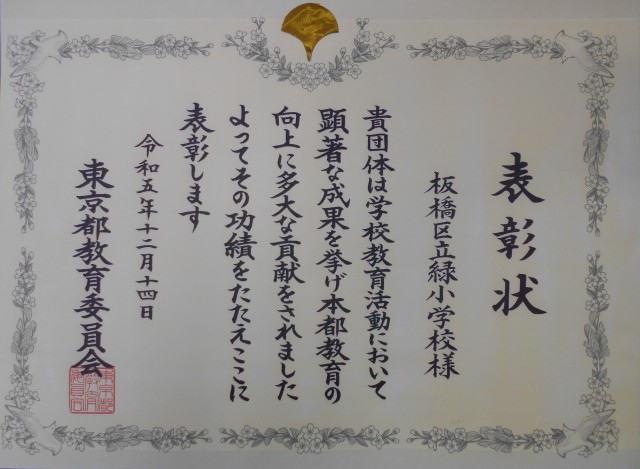 表彰状
板橋区立緑小学校様
貴団体は学校教育活動において
顕著な成果を挙げ本都教育の
向上に多大な貢献をされました
よってその功績をたたえここに
表彰します
令和五年十二月十四日
東京都教育委員会